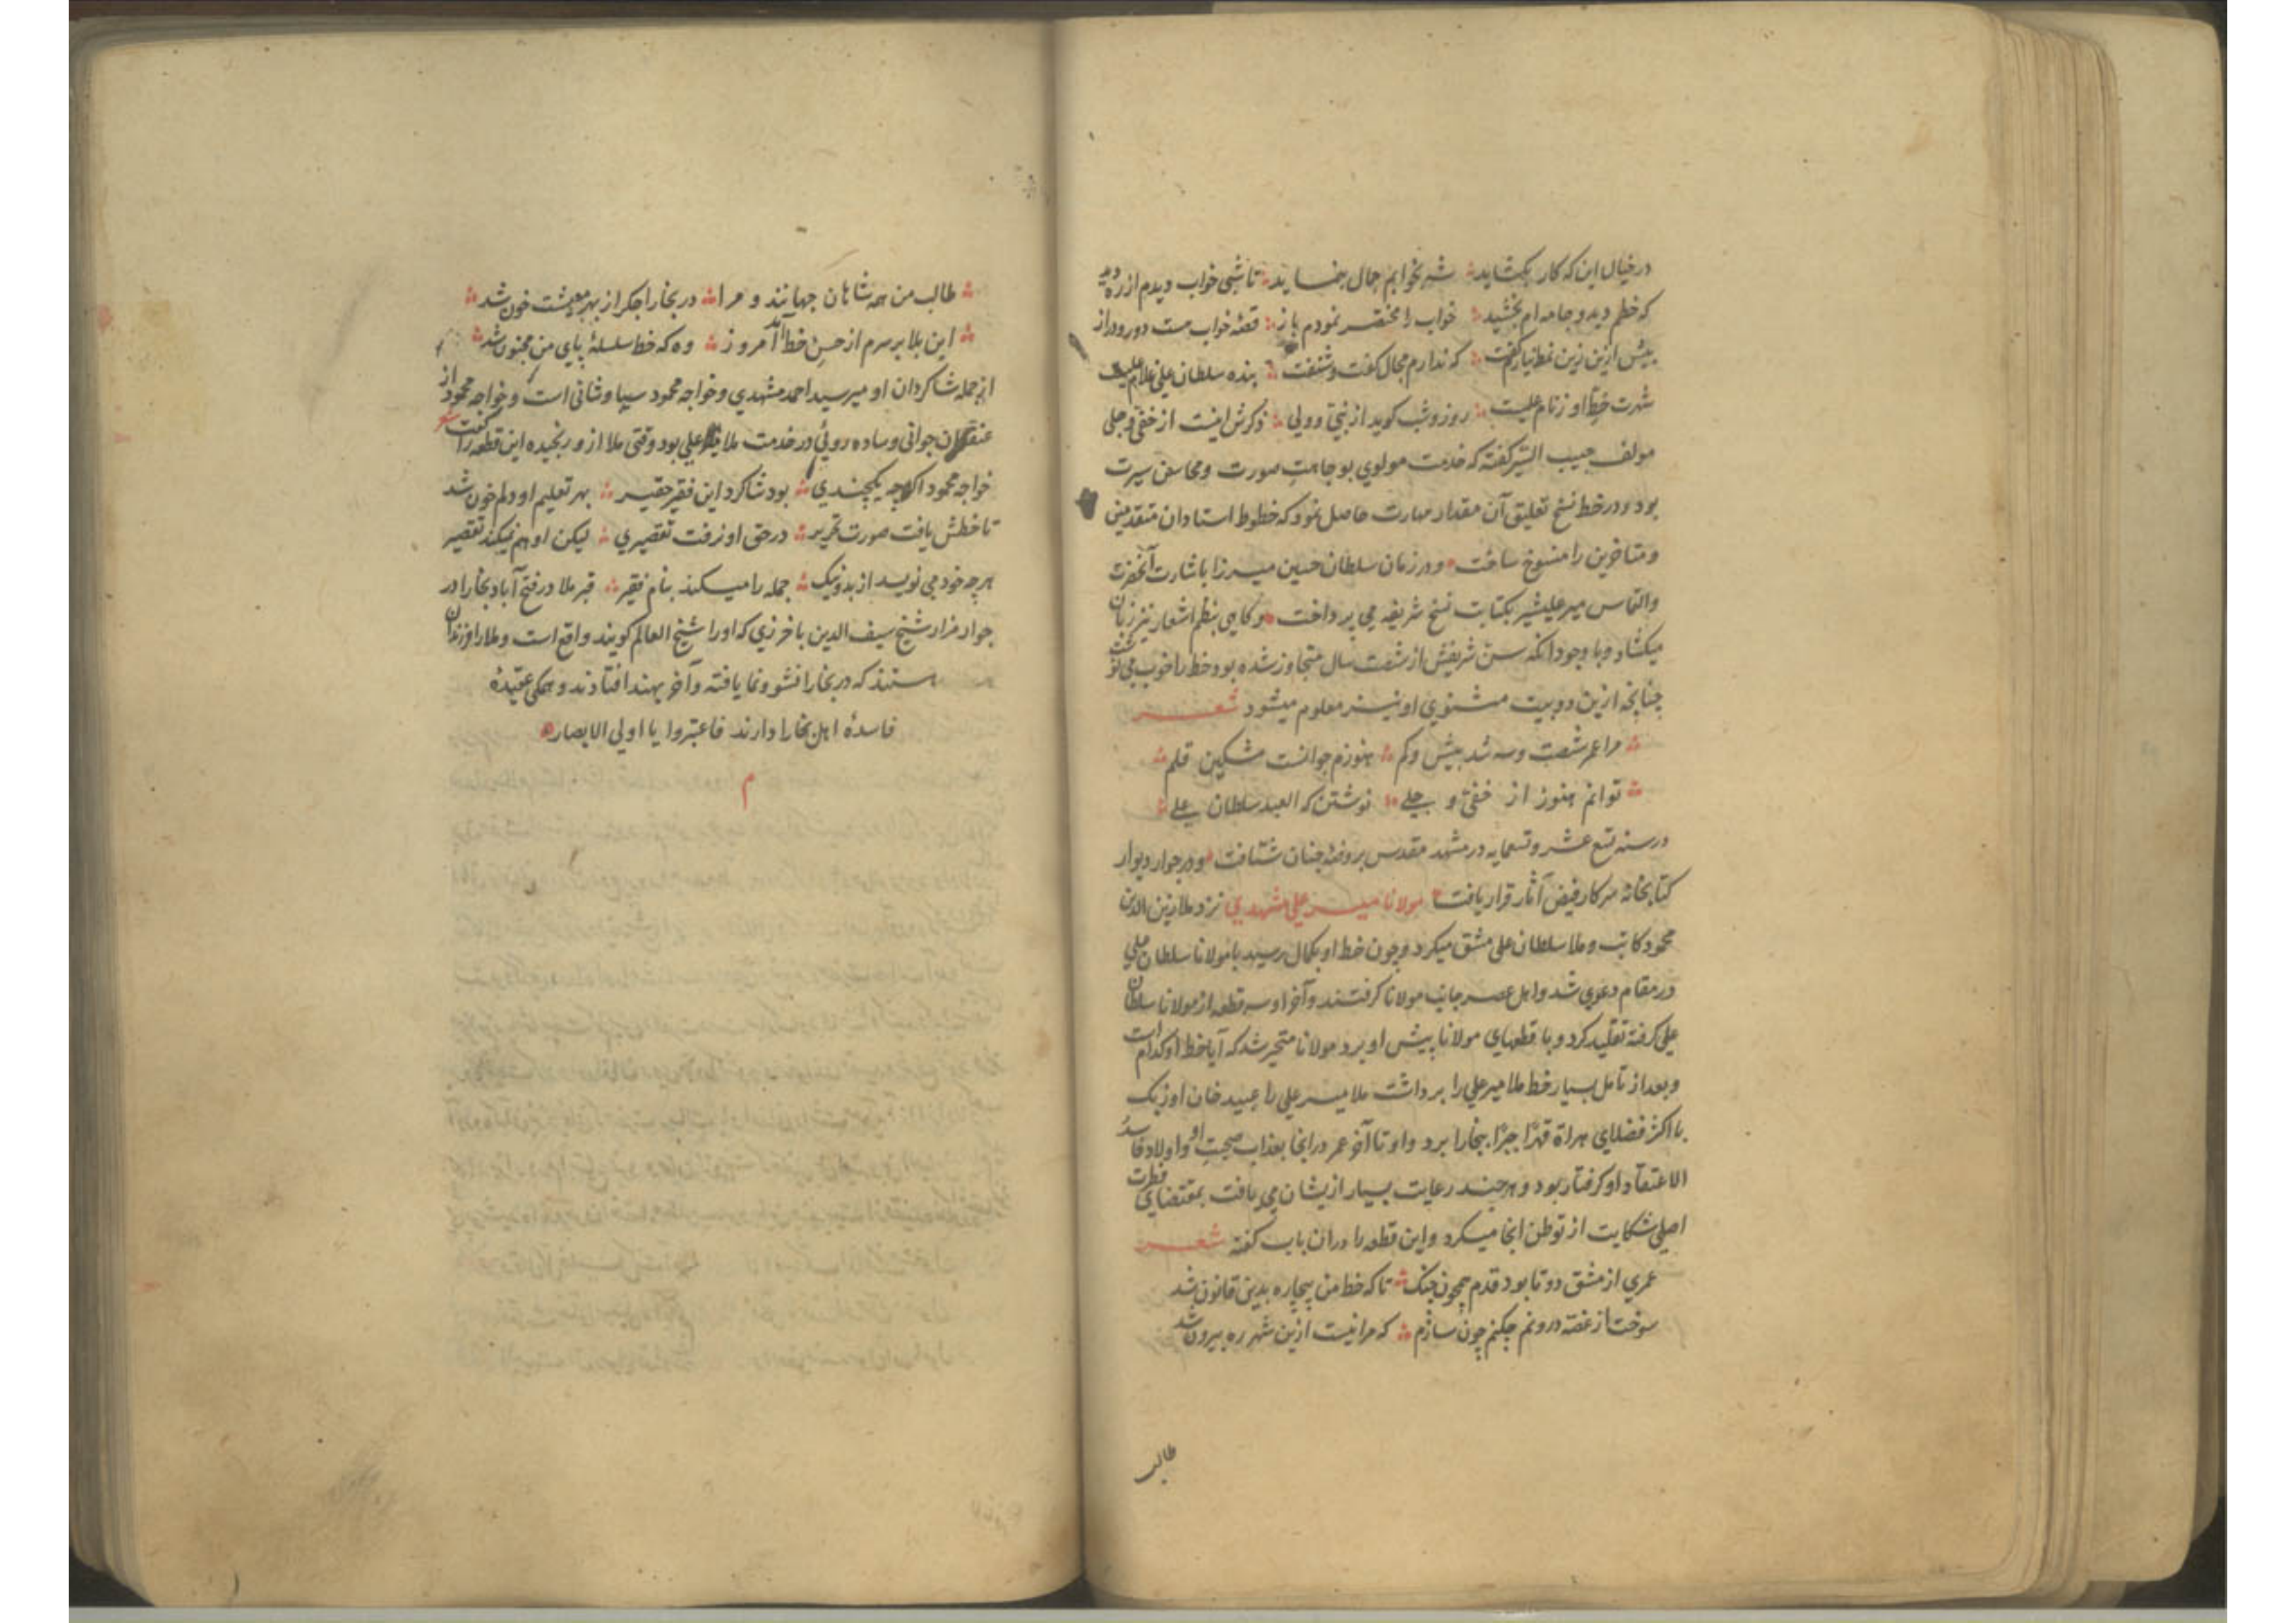 در خیال این که کار بکشاید شه بخوابم جمال بنماید تا شبی خواب دیدم از ره دید
که خطم دید و جامه ام بخشید خواب را مختصر نمودم باز قصّه خواب هست دور و دراز
بیش ازین زین نمط نیارم گفت که ندارم مجال گفت و شنفت بنده سلطان علی غلام علیست
شهرت خطّ او ز نام علیست روز و شب کوید از نبیّ و ولی ذکرش اینست از خفیّ و جلی
مولف حبیب السّیر کفته که خدمت مولوی بوجاهتِ صورت و محاسن سیرت
بود و در خط نسخ تعلیق آن مقدار مهارت حاصل نمود که خطوط استادان متقدمین
و متاخرین را منسوخ ساخت و در زمان سلطان حسین میرزا باشارت آنحضرت
و التماس میر علیشیر بکتابت نسخ شریفه می پرداخت و کاهی بنظم اشعار نیز زبان
میکشاد و با وجود انکه سن شریفش از شصت سال متجاوز شده بود خط را خوب می نوشت
چنانچه ازین دو بیت مثنوی او نیز معلوم میشود شعر
مرا عمر شصت و سه شد بیش و کم هنوزم جوانست مشکین قلم
توانم هنوز از خفیّ و جلی نوشتن که العبد سلطان علی
در سنه تسع عشر و تسعمایه در مشهد مقدس بروضه جنان شتافت و در جوار دیوار
کتابخانه سرکار فیض آثار قرار یافت مولانا میر علی مشهدی نزد ملا زین الدین
محمود کاتب و ملا سلطان علی مشق میکرد و چون خط او بکمال رسید با مولانا سلطان علی
در مقام دعوی شد و اهل عصر جانب مولانا کرفتند و آخر او سه قطعه از مولانا سلطان
علی کرفته تقلید کرد و با قطعهای مولانا پیش او برد مولانا متحیر شد که آیا خط او کدام است
و بعد از تامل بسیار خط ملا میر علی را برداشت ملا میر علی را عبید خان اوزبک
با اکثر فضلای هراة قهرًا جبرًا ببخارا برد و او تا آخر عمر در انجا بعذاب صحبتِ او و اولاد فاسد
الاعتقاد او کرفتار بود و هرچند رعایت بسیار ازیشان می یافت بمقتضای فطرت
اصلی شکایت از توطن انجا میکرد و این قطعه را دران باب کفته شعر
عمری از مشق دوتا بود قدم همچون چنک تا که خط من بیچاره بدین قانون شد
سوخت از غصّه درونم چکنم چون سازم که مرا نیست ازین شهر ره بیرون شد
طالب
طالب من همه شاهان جهانند و مرا در بخارا جکر از بهر معیشت خون شد
این بلا بر سرم از حسنِ خط آمد امروز وه که خط سلسلهٔ پای من مجنون شد
از جمله شاکردان او میر سید احمد مشهدی و خواجه محمود سیاوشانی است و خواجه محمود از
عنفوان جوانی و ساده روئی در خدمت ملا میر علی بود وقتی ملا ازو رنجیده این قطعه را کفت شعر
خواجه محمود اکرچه یکچندی بود شاکرد این فقیر حقیر بهر تعلیم او دلم خون شد
تا خطش یافت صورت تحریر در حق او نرفت تقصیری لیکن او هم نمیکند تقصیر
هرچه خود می نویسد از بد و نیک جمله را میکند بنام فقیر قبر ملا در فتح آباد بخارا در
جوار مزار شیخ سیف الدین باخرزی که او را شیخ العالم کویند واقع است و ملا را فرزندان
هستند که در بخارا نشو و نما یافته و آخر بهند افتادند و همکی عقیدهٔ
فاسدهٔ اهل بخارا دارند فاعتبروا یا اولی الابصار
م